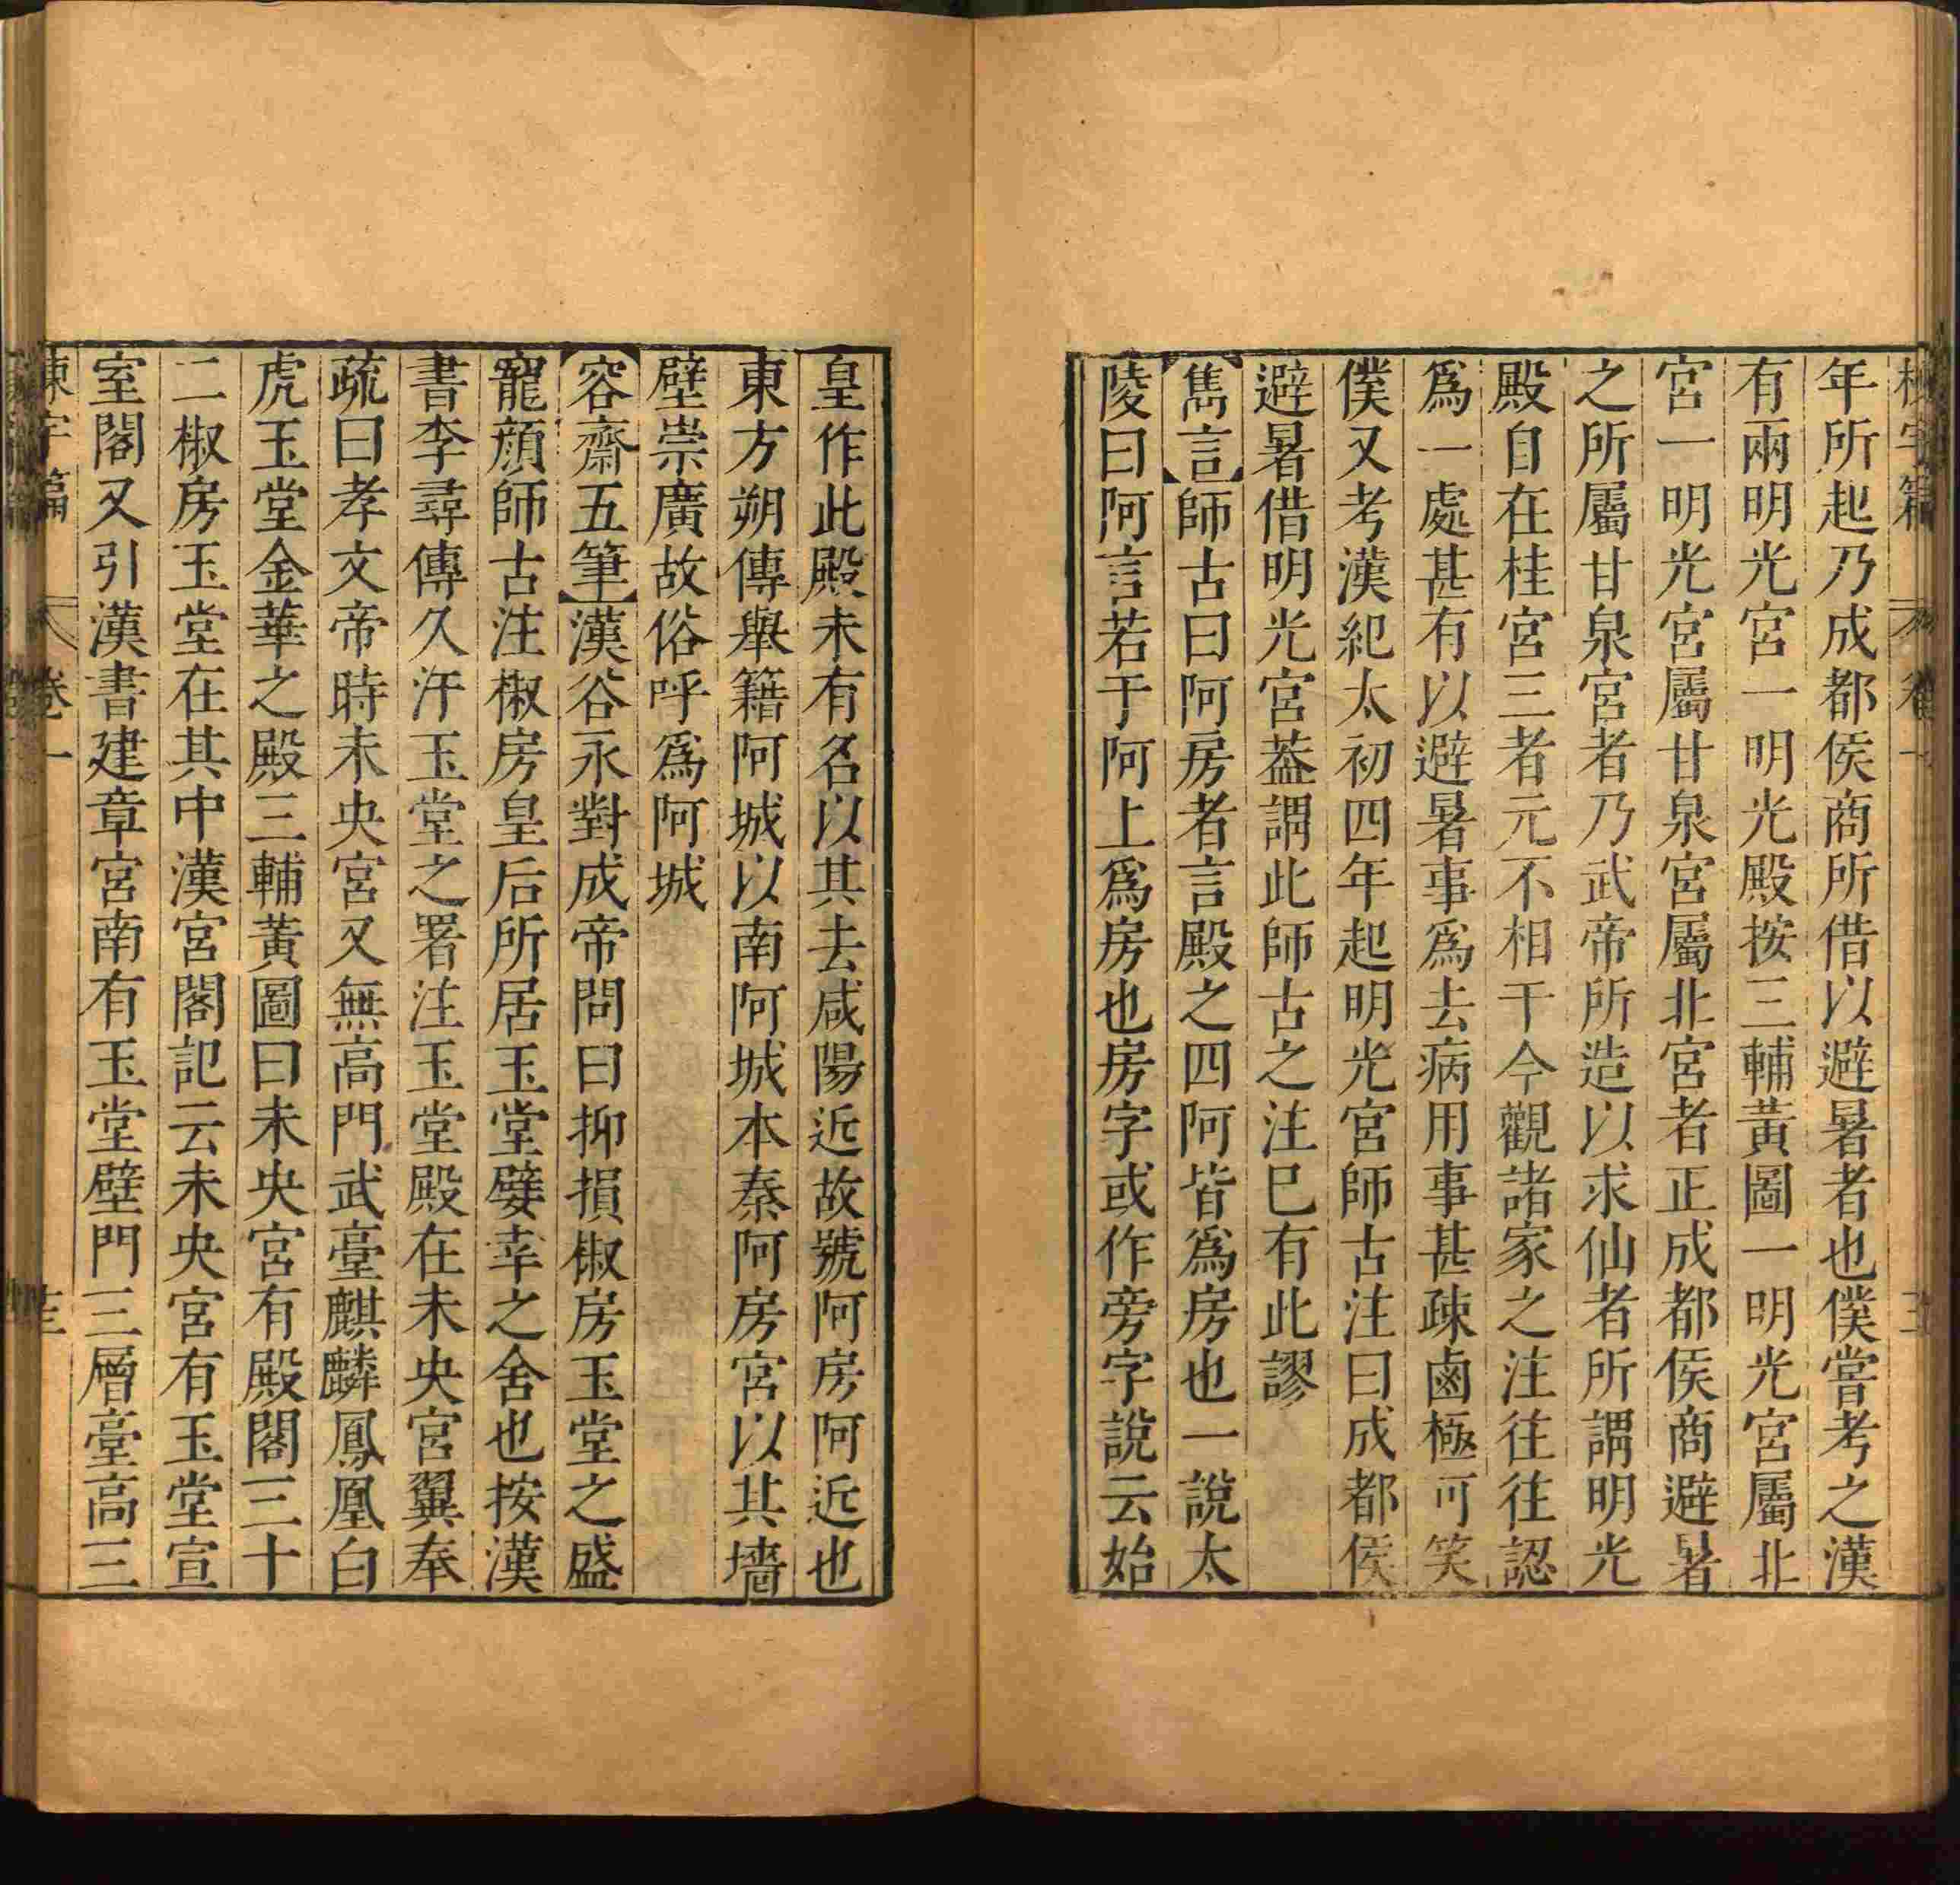 年所起乃成都侯商所借以避暑者也僕嘗考之漢
有兩明光宮一明光殿按三輔黃圖一明光宮屬北
宮一明光宮屬甘泉宮屬北宮者正成都侯商避暑
之所屬甘泉宮者乃武帝所造以求仙者所謂明光
殿自在桂宮三者元不相干今觀諸家之注往往認
爲一處甚有以避暑事爲去病用事甚疎鹵極可笑
僕又考漢紀太初四年起明光宮師古注曰成都侯
避暑借明光宮葢謂此師古之注巳有此謬
【雋言】師古曰阿房者言殿之四阿皆爲房也一說太
陵曰阿言若于阿上爲房也房字或作旁字說云始
皇作此殿未有名以其去咸陽近故號阿房阿近也
東方朔傳舉籍阿城以南阿城本秦阿房宮以其墻
壁崇廣故俗呼爲阿城
【容齋五筆】漢谷永對成帝問曰抑損椒房玉堂之盛
寵顔師古注椒房皇后所居玉堂嬖幸之舍也按漢
書李尋傳久汙玉堂之署注玉堂殿在未央宮翼奉
疏曰孝文帝時未央宮又無高門武臺麒麟鳳凰白
虎玉堂金華之殿三輔黃圖曰未央宮有殿閣三十
二椒房玉堂在其中漢宮閣記云未央宮有玉堂宣
室閣又引漢書建章宮南有玉堂壁門三層臺高三
卷一